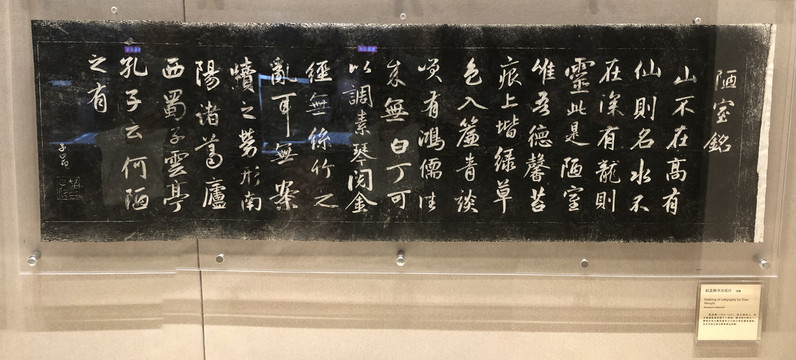 陋室銘
山不在高有
仙則名水不
在深有龍則
靈此是陋室
惟吾德馨苔
痕上堦綠草
色入簾青談
咲有鴻儒往
來無白丁可
以調素琴閱金
經無絲竹之
亂耳無案
牘之勞形南
陽諸葛廬
西蜀子雲亭
孔子云何陋
之有
子昂
赵孟頫书法拓片
Rubbing of calligraphy by Zhao Mengfu